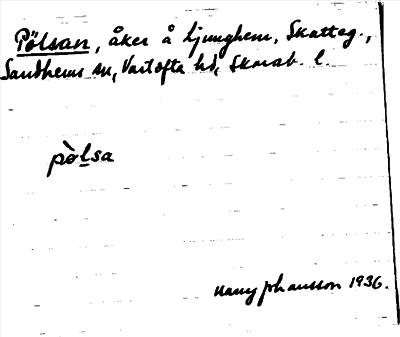 Pölsan, åker å Ljunghem, Skatteg.,
Sandhems sn, Vartofta hd, Skarab. l.
pò̀lsa
Nanny Johansson 1936.